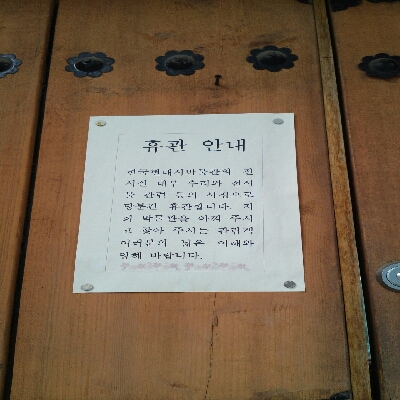 휴관 안내
한국현대시박물관의 전
시실 내부 수리와 전시
물 관련 등의 사정으로
당분간 휴관입니다. 저
희 박물관을 아껴 주시
고 찾아 주시는 관람객
여러분의 넓은 이해와
양해 바랍니다.